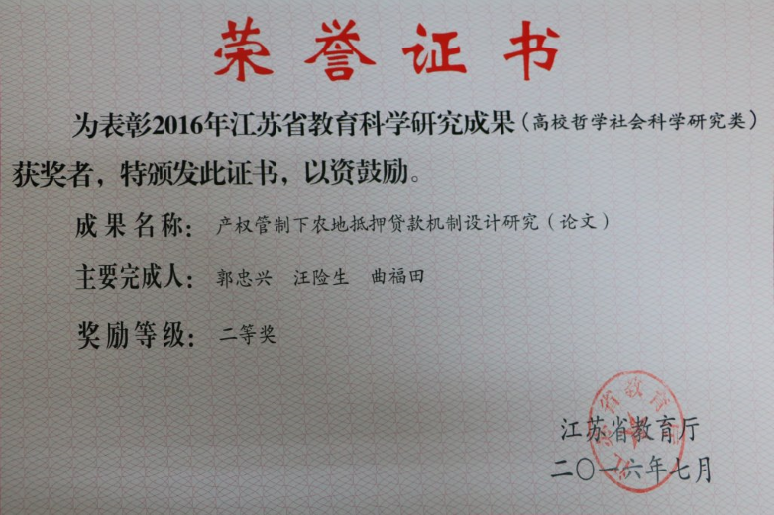 荣誉证书
为表彰2016年江苏省教育科学研究成果（高校哲学社会科学研究类）
获奖者，特颁发此证书，以资鼓励。
成果名称：产权管制下农地抵押贷款机制设计研究（论文）
主要完成人：郭忠兴 汪险生 曲福田
奖励等级：二等奖
江苏省教育厅
二〇一六年七月